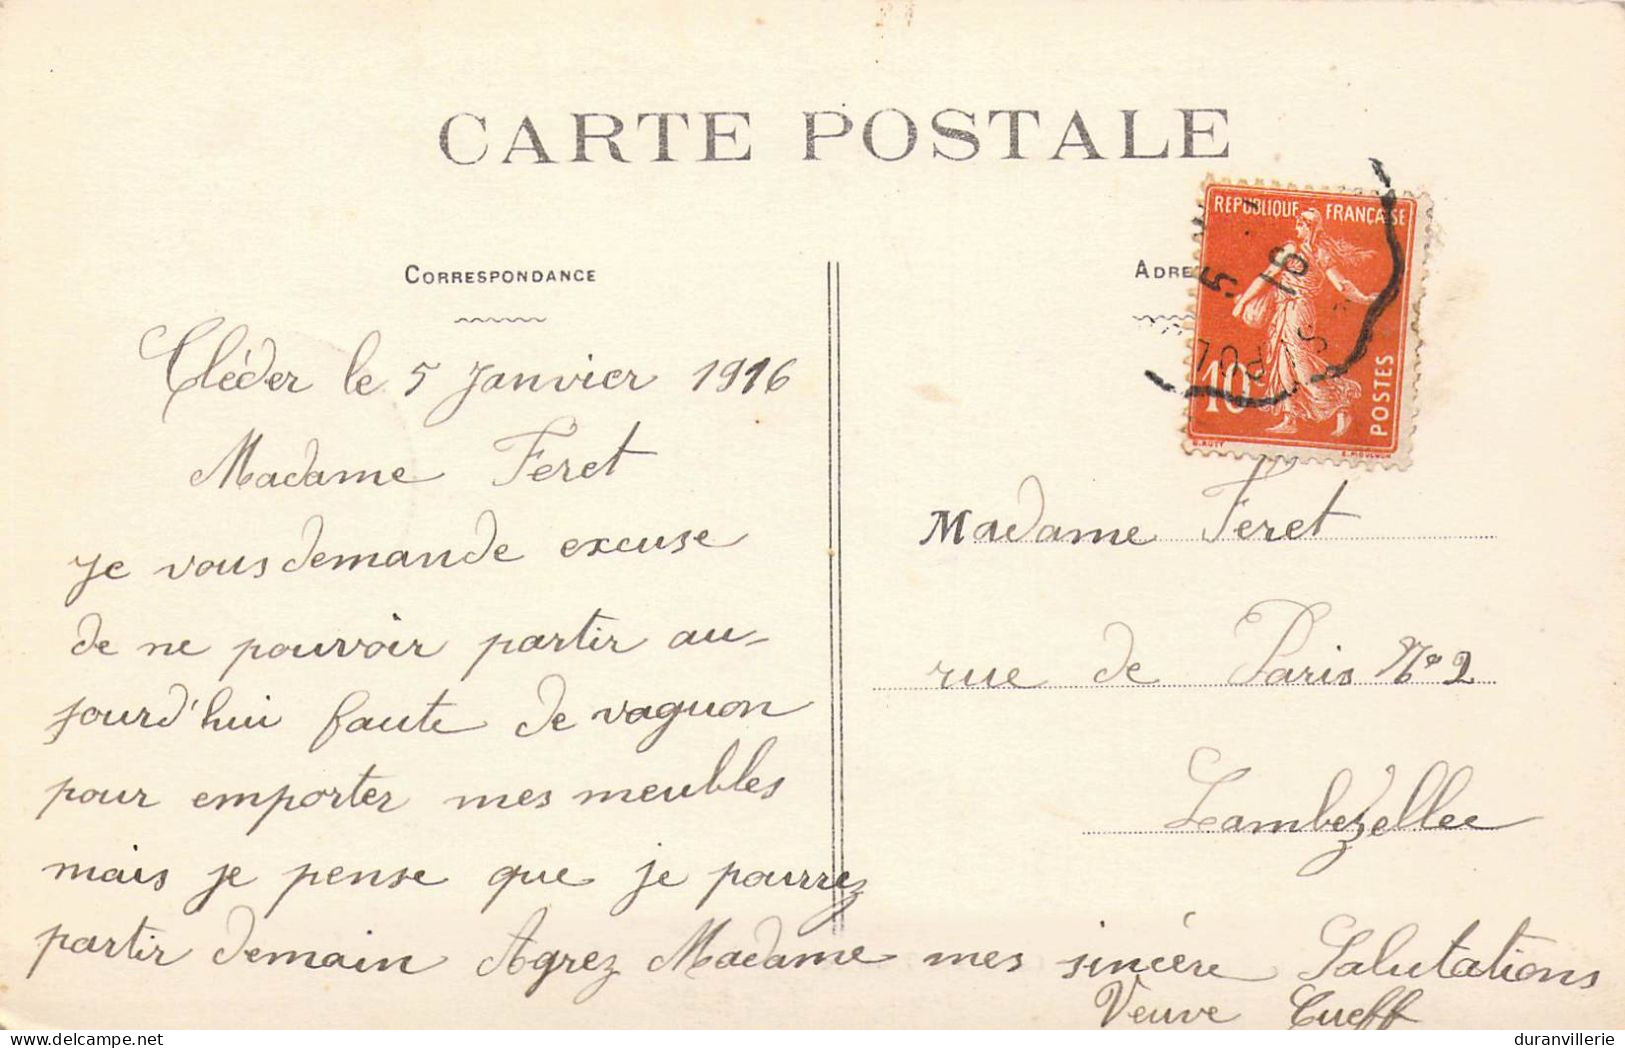 CARTE POSTALE
CORRESPONDANCE
Cléder le 5 Janvier 1916
Madame Feret
Je vous demande excuse
de ne pouvoir partir au-
jourd'hui faute de vaguon
pour emporter mes meubles
mais je pense que je pourrez
partir demain Agrez Madame mes sincère Salutations
Veuve Cueff
ADRE
REPUBLIQUE FRANÇAISE
10c
POSTES
5
16
ST POL
Madame Feret
rue de Paris No 2
Lambezellec
duranvillerie